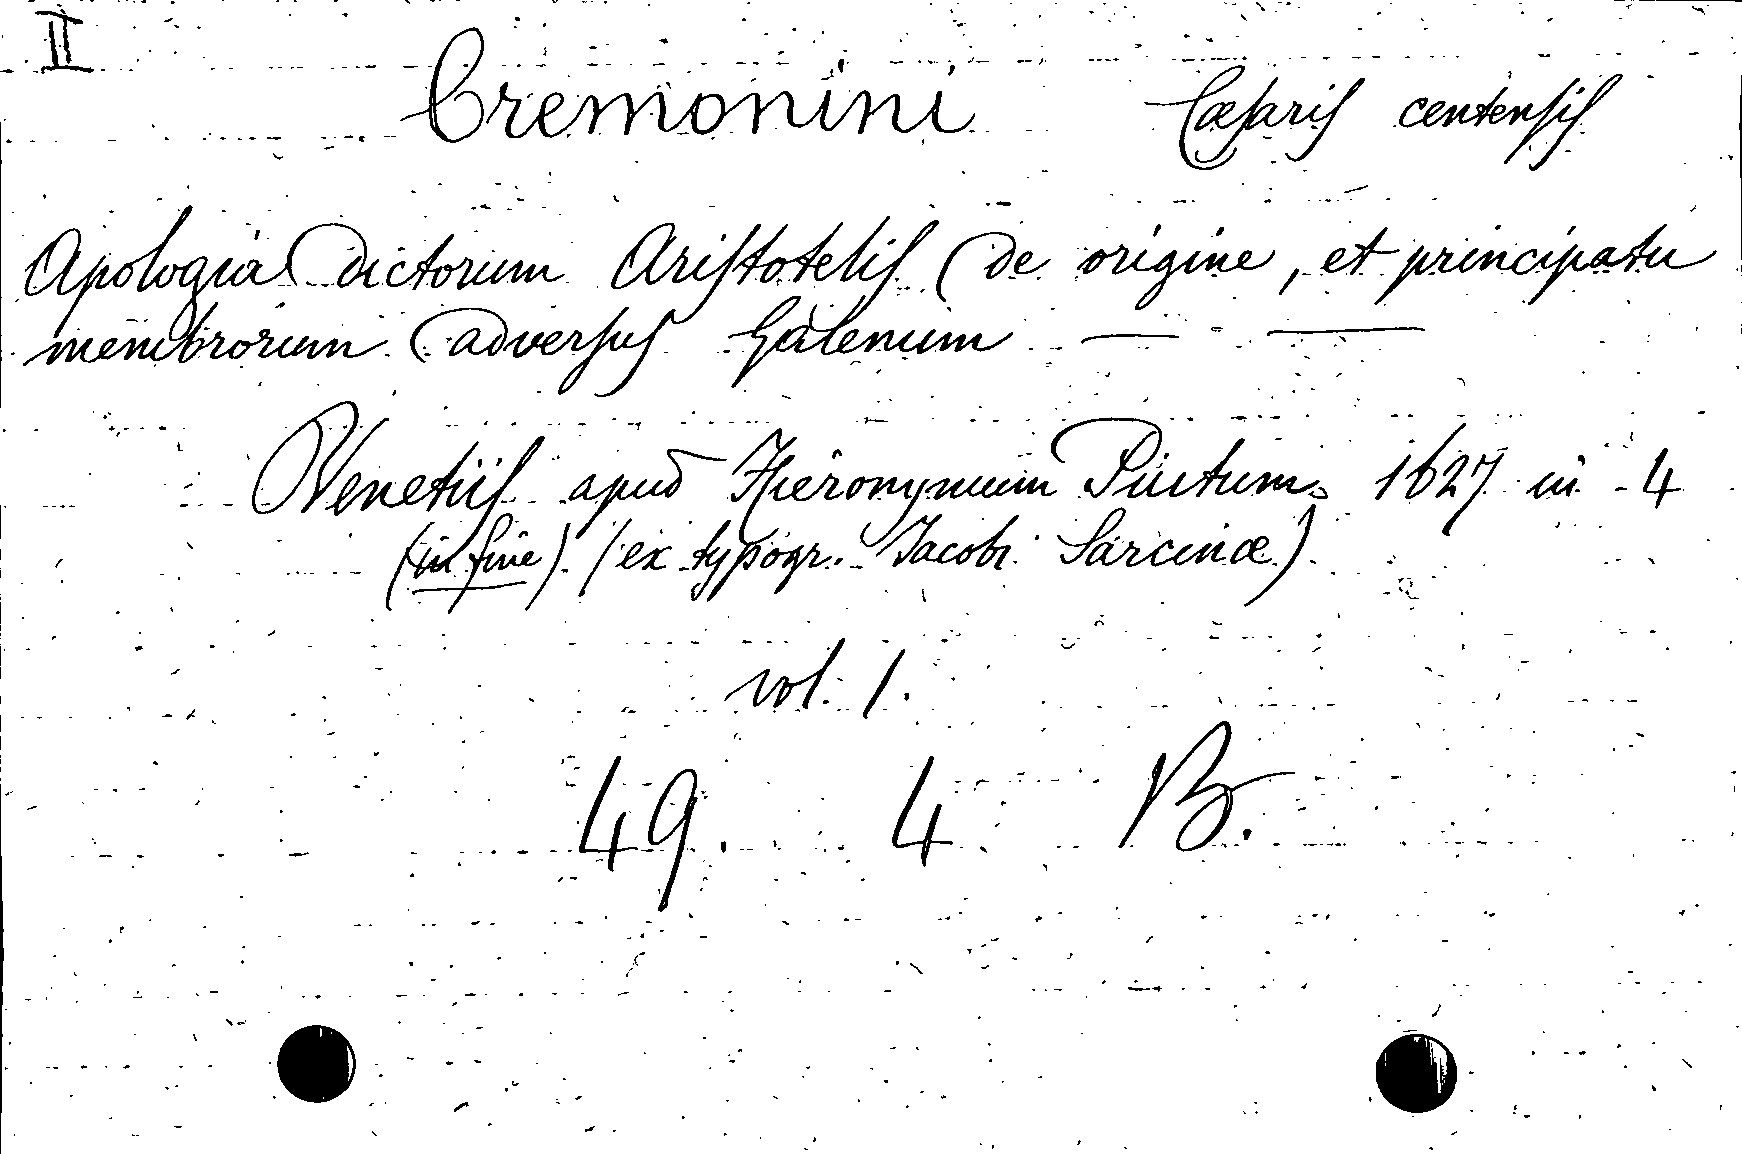 II
Cremonini Cæsaris centensis
Apologia dictorum Aristotelis de origine, et principatu
membrorum adversus Galenum — —
Venetiis apud Hieronymum Piutum. 1627 in 4
(in fine) (ex typogr. Jacobi Sarcinæ)
vol. 1.
49. 4 B.